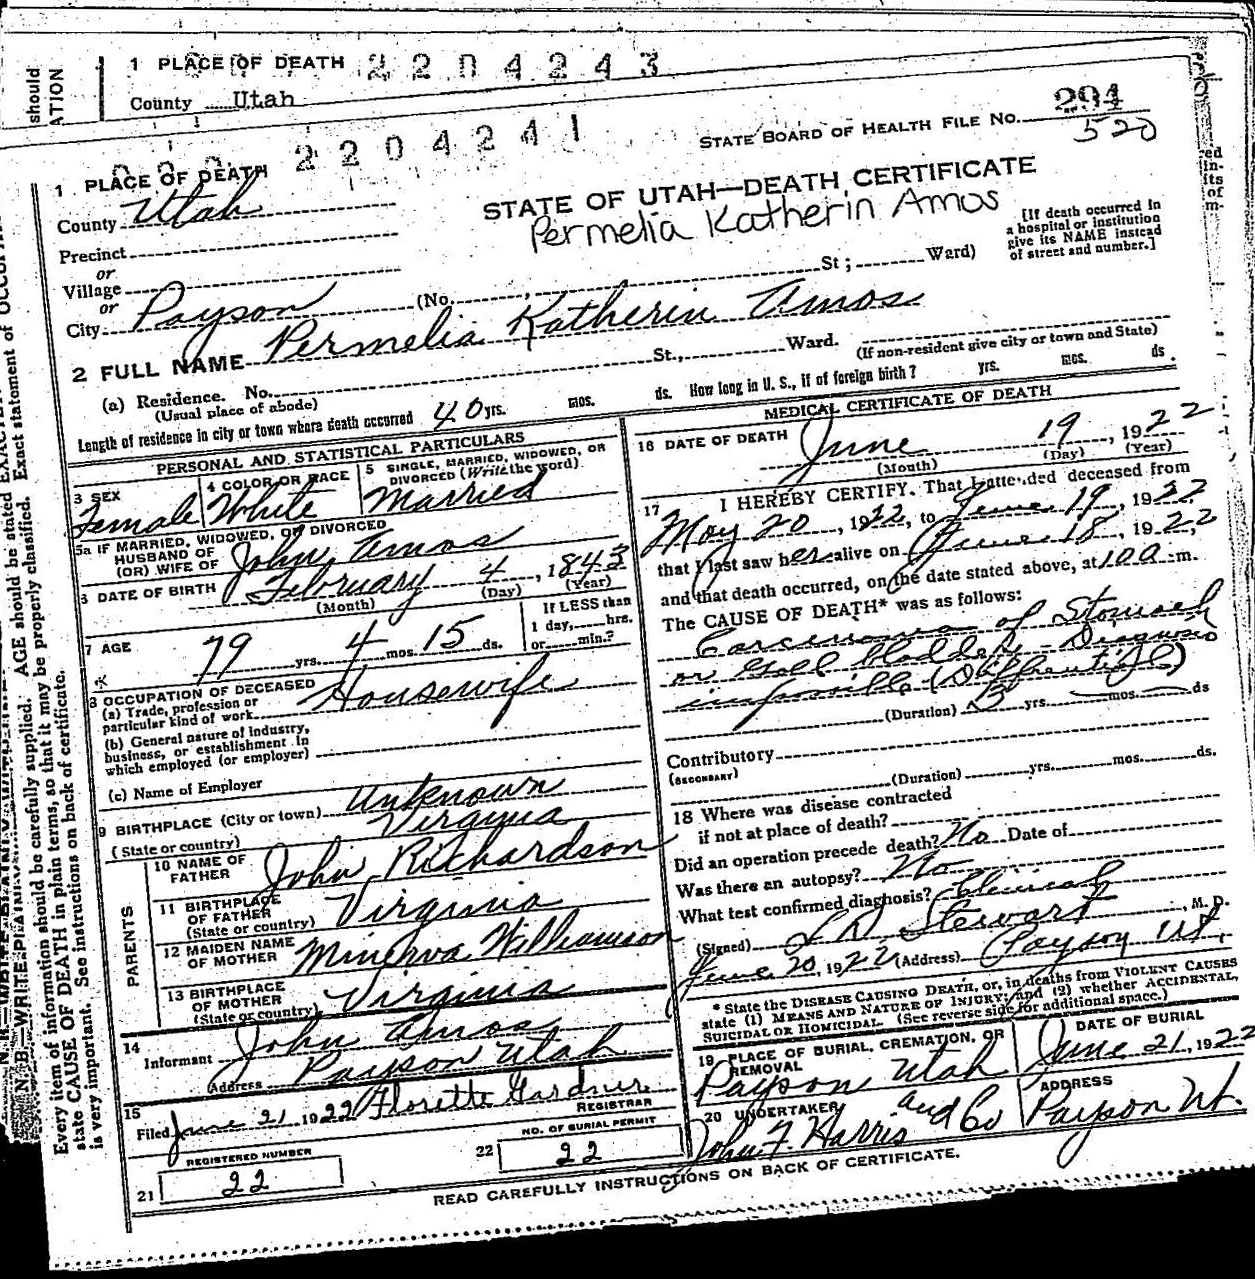 should
ATION
1 PLACE OF DEATH 2204243
County Utah
2204241
STATE BOARD OF HEALTH FILE No. 294
520
1 PLACE OF DEATH
County Utah
STATE OF UTAH—DEATH CERTIFICATE
Permelia Katherin Amos
[If death occurred in
a hospital or institution
give its NAME instead
of street and number.]
Precinct
or
Village
or
City Payson (No. St; Ward)
2 FULL NAME Permelia Katherin Amos
(a) Residence. No. St., Ward.
(Usual place of abode) (If non-resident give city or town and State)
Length of residence in city or town where death occurred 40 yrs. mos. ds. How long in U. S., if of foreign birth? yrs. mos. ds.
PERSONAL AND STATISTICAL PARTICULARS
3 SEX
Female
4 COLOR OR RACE
White
5 SINGLE, MARRIED, WIDOWED, OR
DIVORCED (Write the word)
Married
5a IF MARRIED, WIDOWED, OR DIVORCED
HUSBAND OF
(OR) WIFE OF John Amos
6 DATE OF BIRTH February 4, 1843
(Month) (Day) (Year)
7 AGE 79 yrs. 4 mos. 15 ds.
If LESS than
1 day, hrs.
or min.?
8 OCCUPATION OF DECEASED
(a) Trade, profession or
particular kind of work Housewife
(b) General nature of industry,
business, or establishment in
which employed (or employer)
(c) Name of Employer
9 BIRTHPLACE (City or town) Unknown
(State or country) Virginia
PARENTS
10 NAME OF
FATHER John Richardson
11 BIRTHPLACE
OF FATHER
(State or country) Virginia
12 MAIDEN NAME
OF MOTHER Minerva Williamson
13 BIRTHPLACE
OF MOTHER
(State or country) Virginia
14
Informant John Amos
Address Payson Utah
15
Filed June 21 1922 Florette Gardner
REGISTRAR
REGISTERED NUMBER
21 22
NO. OF BURIAL PERMIT
22 22
MEDICAL CERTIFICATE OF DEATH
16 DATE OF DEATH June 19, 1922
(Month) (Day) (Year)
17 I HEREBY CERTIFY, That I attended deceased from
May 20, 1922, to June 19, 1922
that I last saw her alive on June 18, 1922,
and that death occurred, on the date stated above, at 10 a. m.
The CAUSE OF DEATH* was as follows:
Carcinoma of Stomach
or Gall bladder - Diagnosis
impossible (Differential)
(Duration) 3 yrs. mos. ds
Contributory
(SECONDARY)
(Duration) yrs. mos. ds.
18 Where was disease contracted
if not at place of death?
Did an operation precede death? No Date of
Was there an autopsy? No
What test confirmed diagnosis? Clinical
(Signed) L D Stewart, M. D.
June 20, 1922 (Address) Payson Ut.
* State the DISEASE CAUSING DEATH, or, in deaths from VIOLENT CAUSES
state (1) MEANS AND NATURE OF INJURY; and (2) whether ACCIDENTAL,
SUICIDAL OR HOMICIDAL. (See reverse side for additional space.)
19 PLACE OF BURIAL, CREMATION, OR
REMOVAL
Payson Utah
DATE OF BURIAL
June 21, 1922
20 UNDERTAKER
John F. Harris and Co
ADDRESS
Payson Ut.
READ CAREFULLY INSTRUCTIONS ON BACK OF CERTIFICATE.
Every item of information should be carefully supplied. AGE should be stated
state CAUSE OF DEATH in plain terms, so that it may be properly classified. Exact statement of
is very important. See instructions on back of certificate.